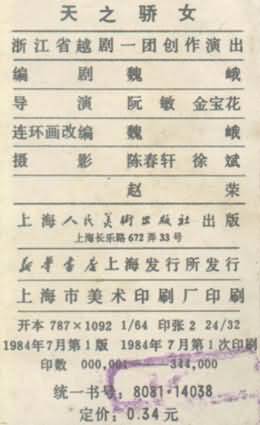 天之骄女
浙江省越剧一团创作演出
编 剧 魏 峨
导 演 阮 敏 金宝花
连环画改编 魏 峨
摄 影 陈春轩 徐 斌
赵 荣
上海人民美術出版社 出版
上海长乐路 672 弄 33 号
新华书店上海发行所发行
上海市美术印刷厂印刷
开本 787×1092 1/64 印张 2 24/32
1984年7月第1版 1984年7月第1次印刷
印数 000,001— 344,000
统一书号：8081·14038
定价：0.34 元